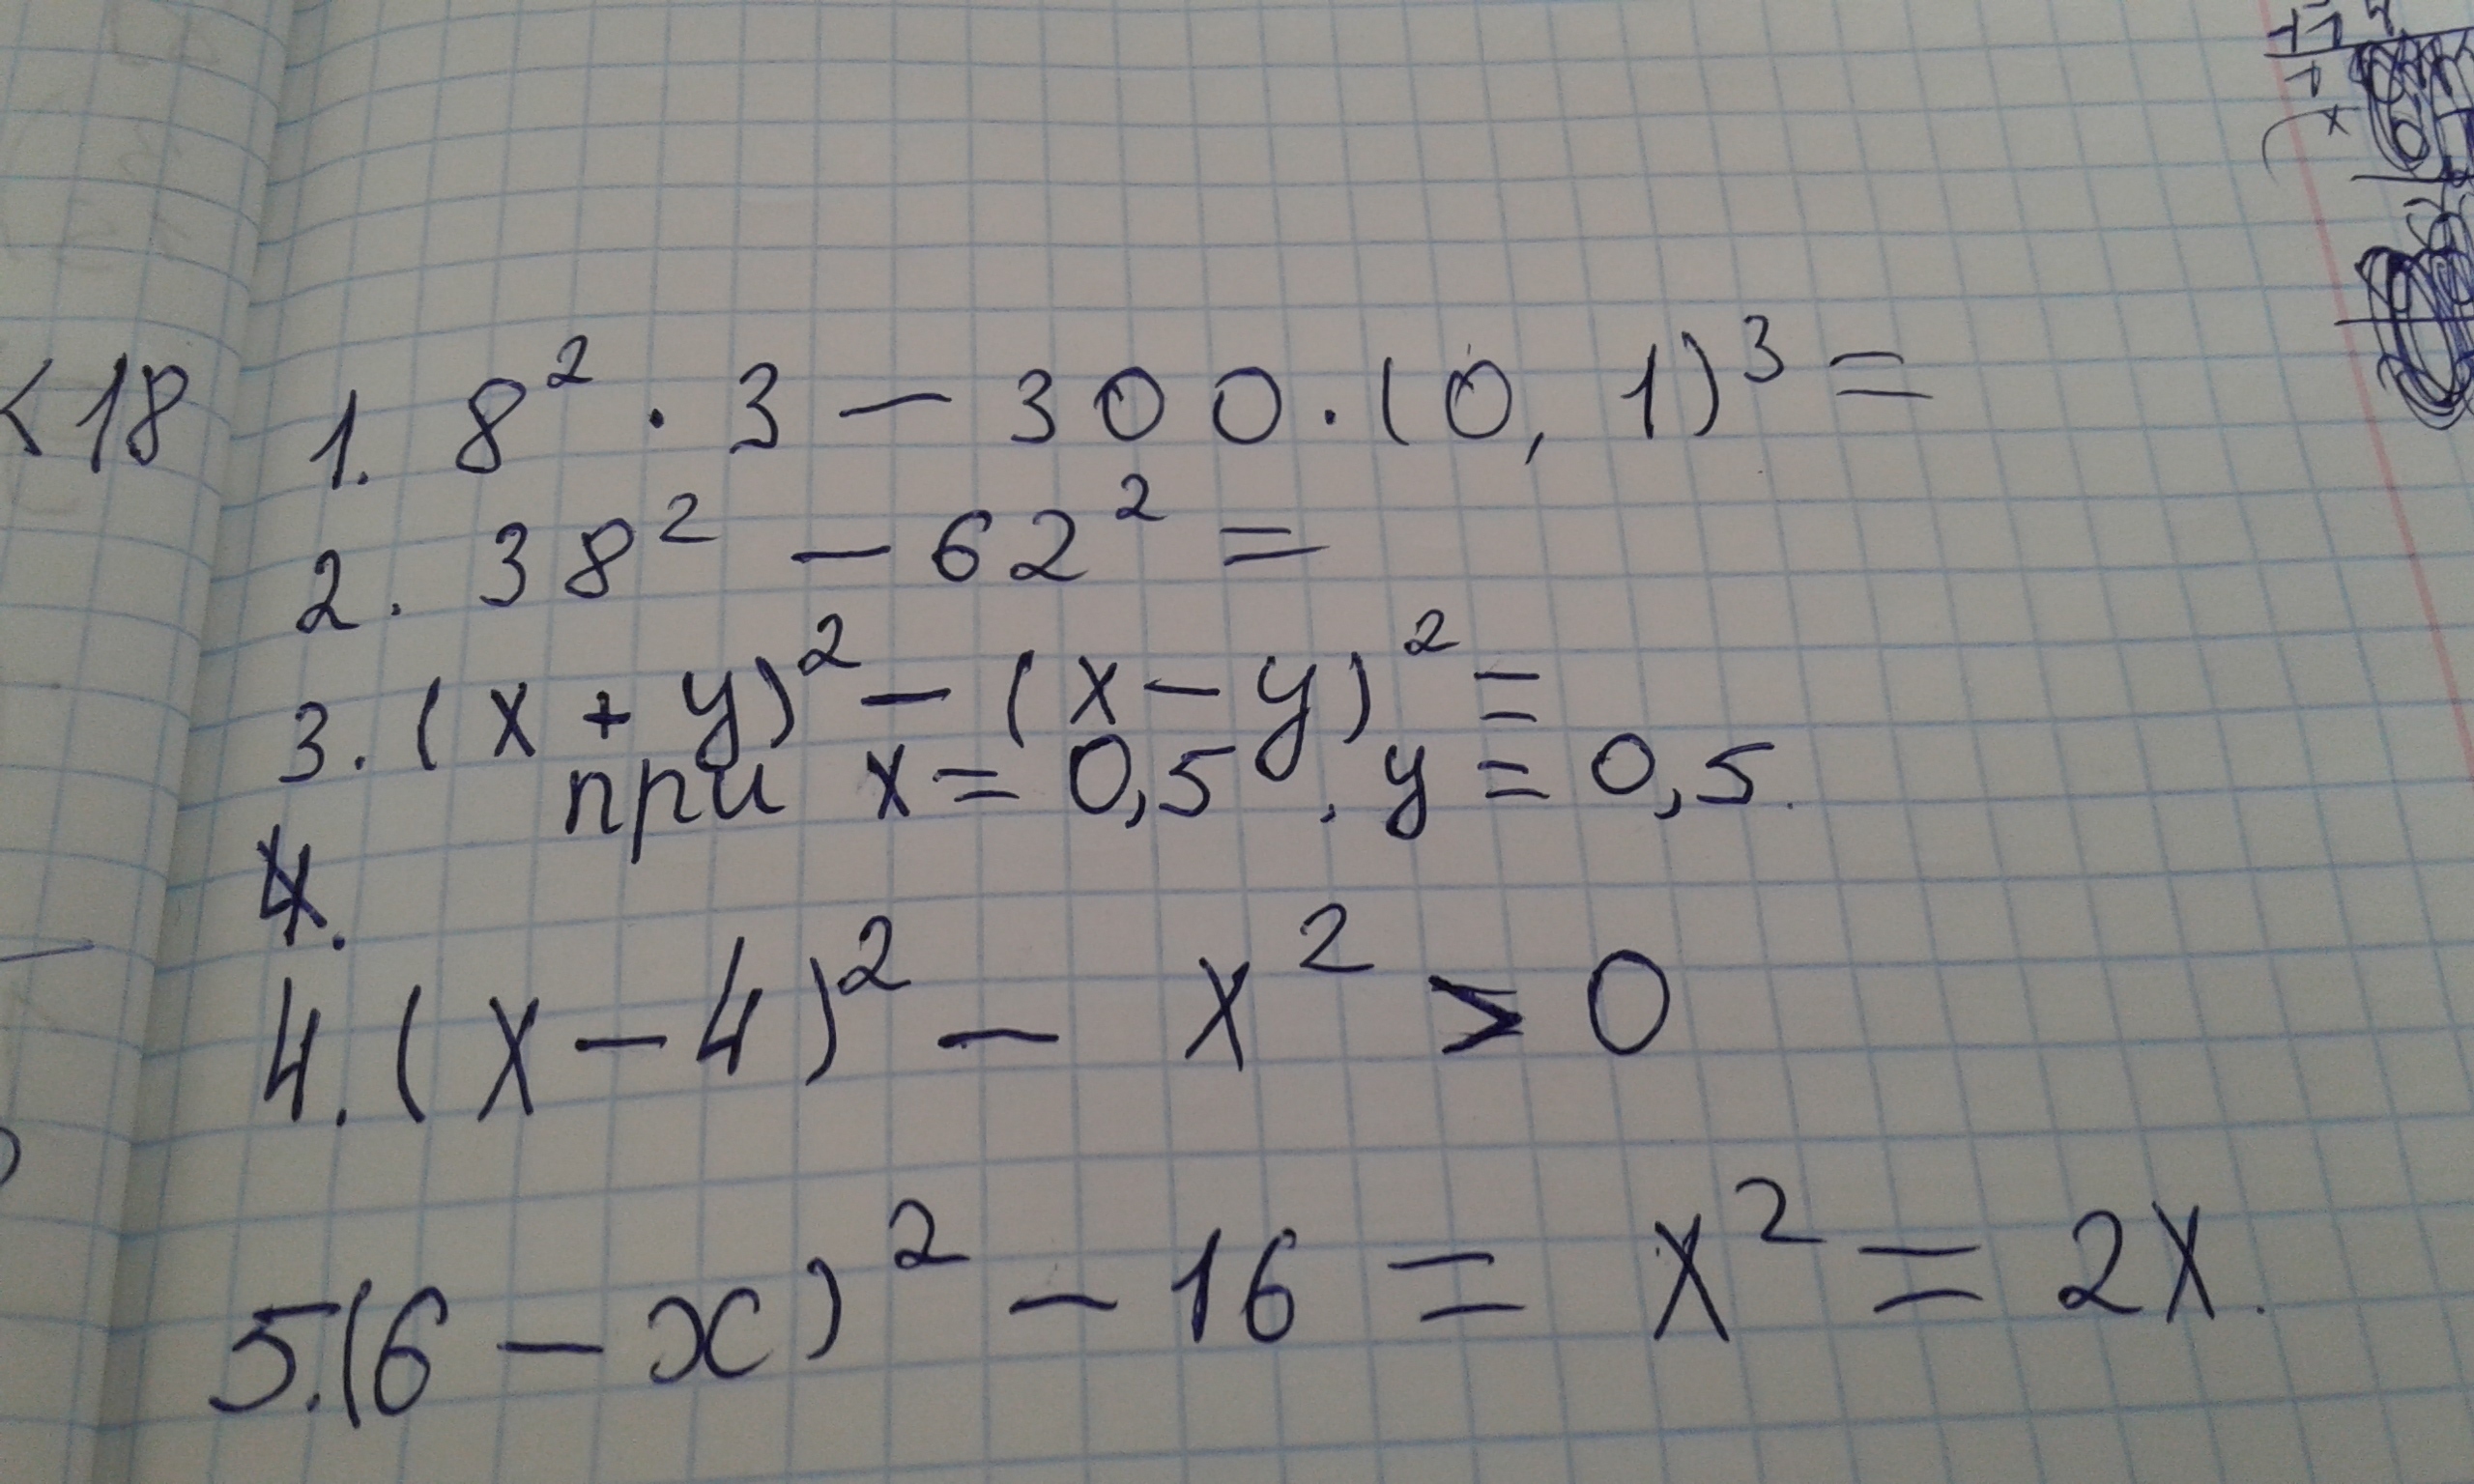 <18
1. 8² · 3 — 300 · (0, 1)³ =
2. 38² — 62² =
3. (x + y)² — (x — y)² =
при x = 0,5, y = 0,5.
4.
4. (x — 4)² — x² > 0
5. (6 — x)² — 16 = x² = 2x.